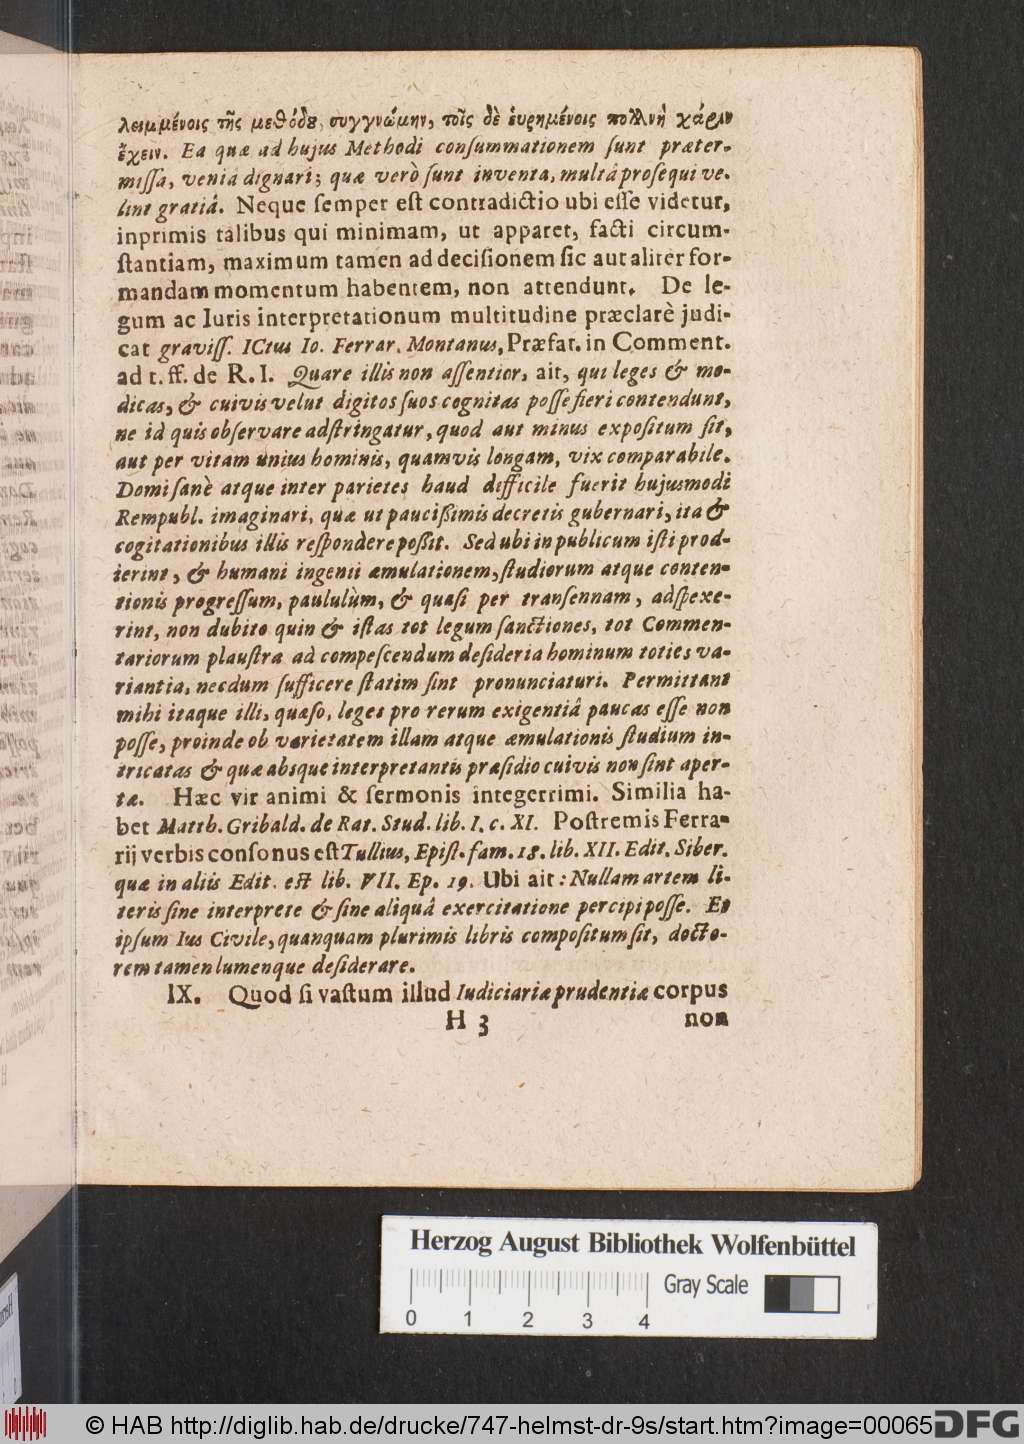 λειμμένοις τῆς μεθόδȣ, συγγνώμην, τοῖς δὲ ἑυρημένοις πολλὴν χάριν
ἔχειν. Ea quæ ad hujus Methodi conſummationem ſunt præter-
miſſa, veniâ dignari; quæ verò ſunt inventa, multâ proſequi ve-
lint gratiâ. Neque ſemper eſt contradictio ubi eſſe videtur,
inprimis talibus qui minimam, ut apparet, facti circum-
ſtantiam, maximum tamen ad deciſionem ſic aut aliter for-
mandam momentum habentem, non attendunt. De le-
gum ac Iuris interpretationum multitudine præclarè judi-
cat graviſſ. ICtus Io. Ferrar. Montanus, Præfat. in Comment.
ad t. ff. de R. I. Quare illis non aſſentior, ait, qui leges & mo-
dicas, & cuivis velut digitos ſuos cognitas poſſe fieri contendunt,
ne id quis obſervare adſtringatur, quod aut minus expoſitum ſit,
aut per vitam unius hominis, quamvis longam, vix comparabile.
Domi ſanè atque inter parietes haud difficile fuerit hujusmodi
Rempubl. imaginari, quæ ut pauciſſimis decretis gubernari, ita &
cogitationibus illis reſpondere poſſit. Sed ubi in publicum iſti prod-
ierint, & humani ingenii æmulationem, ſtudiorum atque conten-
tionis progreſſum, paululùm, & quaſi per tranſennam, adſpexe-
rint, non dubito quin & iſtas tot legum ſanctiones, tot Commen-
tariorum plauſtra ad compeſcendum deſideria hominum toties va-
riantia, necdum ſufficere ſtatim ſint pronunciaturi. Permittant
mihi itaque illi, quæſo, leges pro rerum exigentiâ paucas eſſe non
poſſe, proinde ob varietatem illam atque æmulationis ſtudium in-
tricatas & quæ absque interpretantis præſidio cuivis non ſint aper-
tæ. Hæc vir animi & ſermonis integerrimi. Similia ha-
bet Matth. Gribald. de Rat. Stud. lib. I. c. XI. Poſtremis Ferra-
rij verbis conſonus eſt Tullius, Epiſt. fam. 18. lib. XII. Edit. Siber.
quæ in aliis Edit. eſt lib. VII. Ep. 19. Ubi ait: Nullam artem li-
teris ſine interprete & ſine aliquâ exercitatione percipi poſſe. Et
ipſum Ius Civile, quanquam plurimis libris compoſitum ſit, docto-
rem tamen lumenque deſiderare.
IX. Quod ſi vaſtum illud Iudiciariæ prudentiæ corpus
H 3 non
Herzog August Bibliothek Wolfenbüttel
Gray Scale
0 1 2 3 4
© HAB http://diglib.hab.de/drucke/747-helmst-dr-9s/start.htm?image=00065
DFG